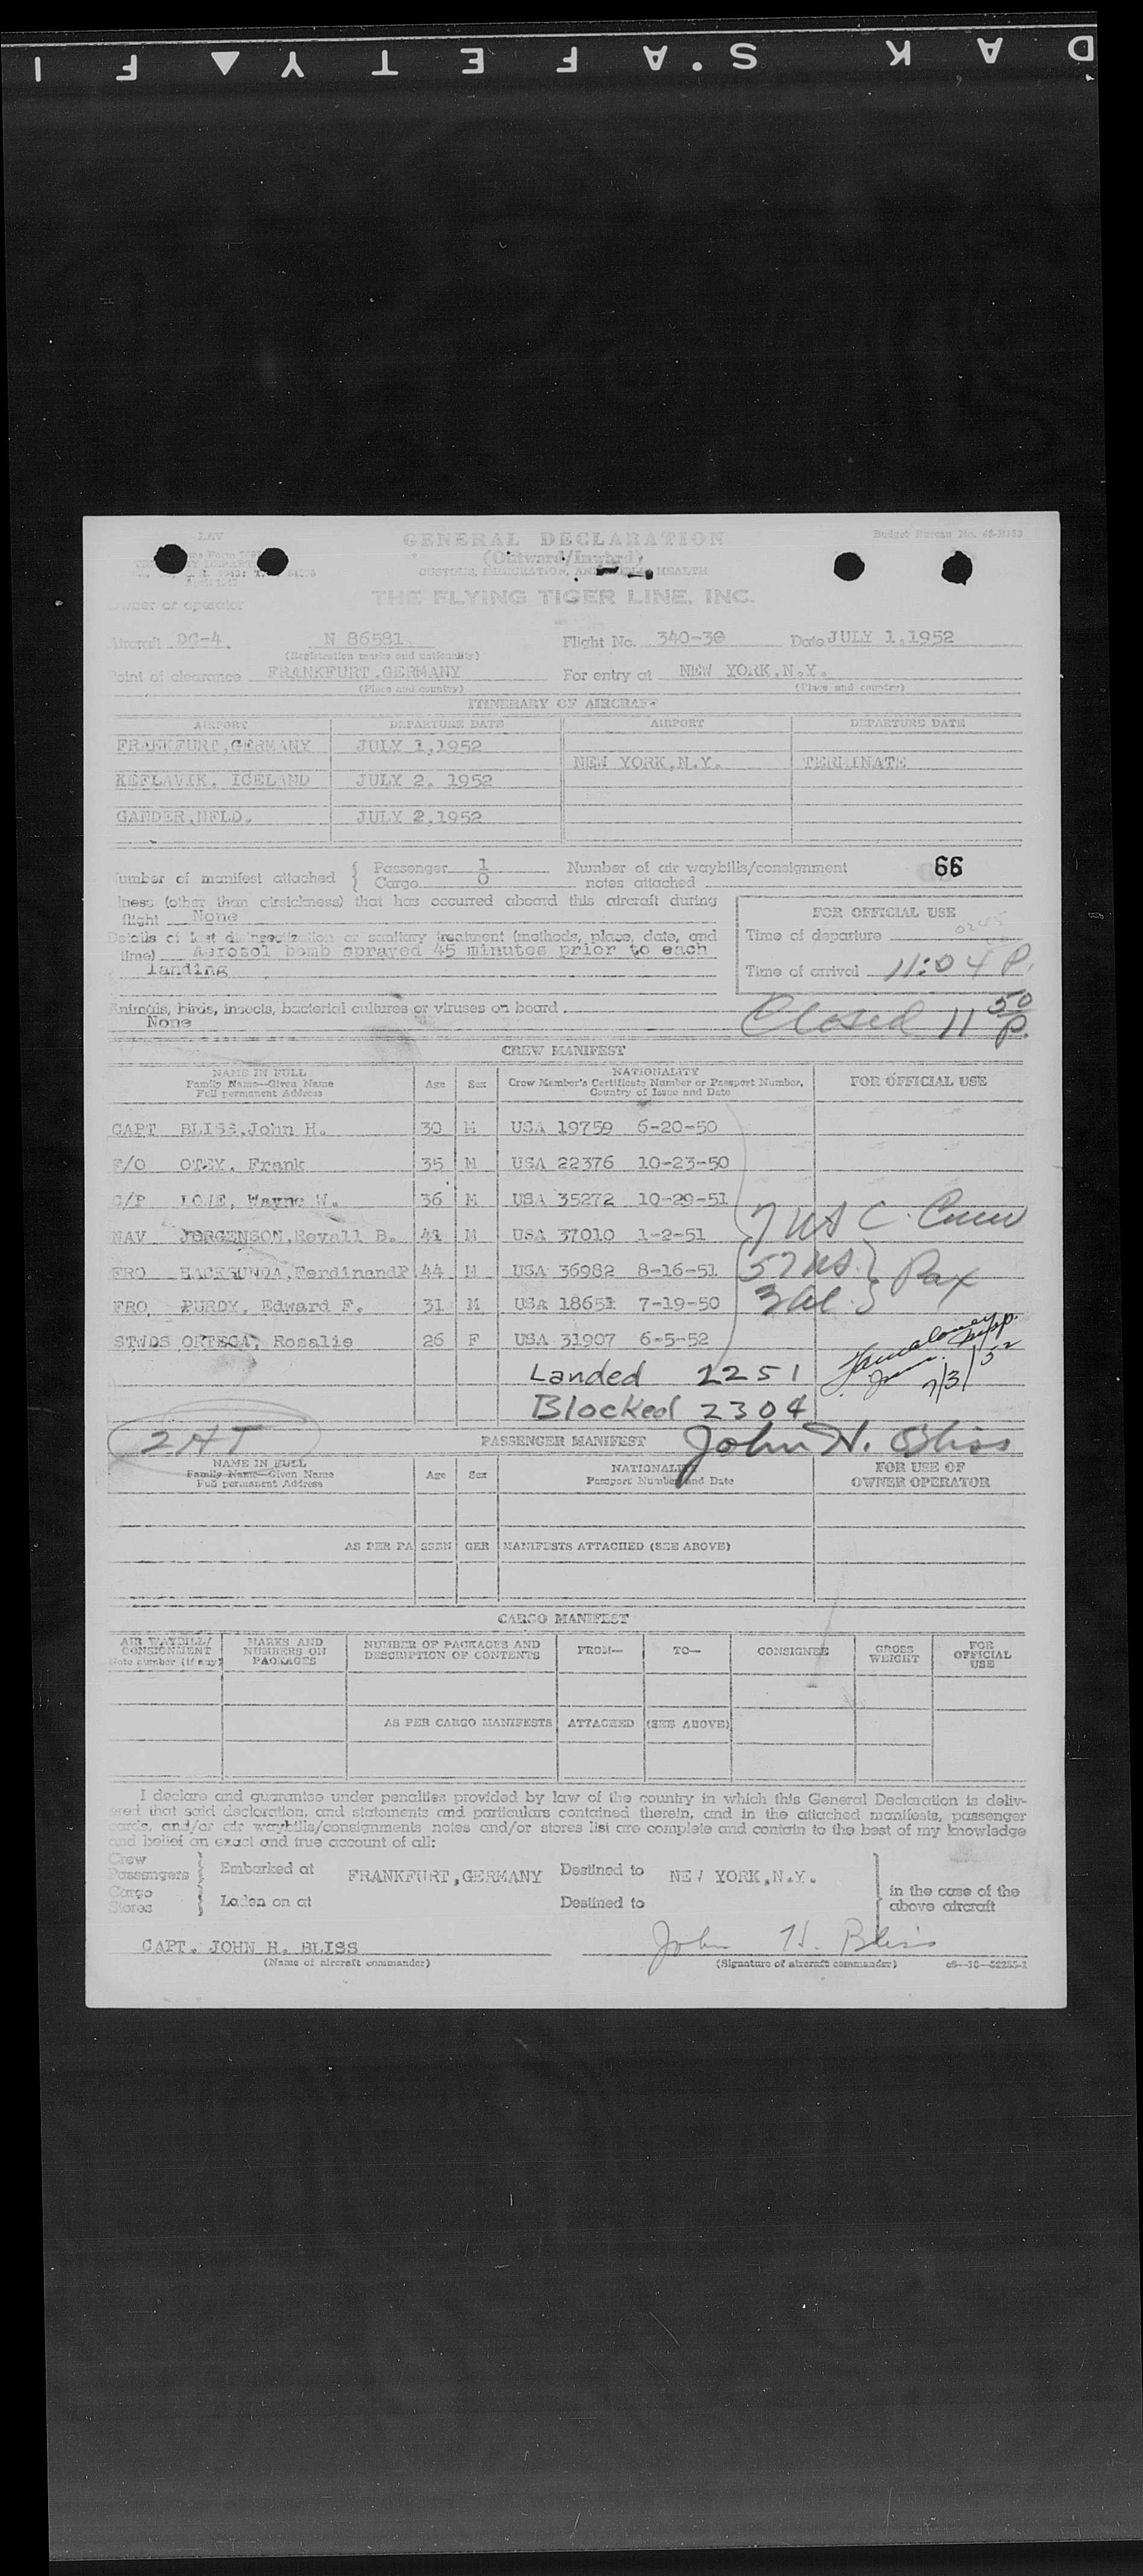 K A S A F E T Y F I
GENERAL DECLARATION
Budget Bureau No.
(Outward/Inward)
CUSTOMS, IMMIGRATION, AND HEALTH
THE FLYING TIGER LINE, INC.
Owner or operator
Aircraft DC-4 N 86581 Flight No. 340-30 Date JULY 1,1952
(Registration marks and nationality)
Point of clearance FRANKFURT,GERMANY For entry at NEW YORK,N.Y.
(Place and country) (Place and country)
ITINERARY OF AIRCRAFT
AIRPORT DEPARTURE DATE AIRPORT DEPARTURE DATE
FRANKFURT,GERMANY JULY 1,1952
NEW YORK,N.Y. TERMINATE
KEFLAVIK, ICELAND JULY 2, 1952
GANDER,NFLD. JULY 2,1952
umber of manifest attached { Passenger 1 Number of air waybills/consignment 66
Cargo 0 notes attached
lness (other than airsickness) that has occurred aboard this aircraft during
flight None
FOR OFFICIAL USE
Details of last disinsectization or sanitary treatment (methods, place, date, and
Time of departure 0245
time) Aerosol bomb sprayed 45 minutes prior to each
landing
Time of arrival 11:04 P.
Animals, birds, insects, bacterial cultures or viruses on board
None
Closed 11 50 P.
CREW MANIFEST
NAME IN FULL
Family Name—Given Name
Full permanent Address
Age Sex
NATIONALITY
Crew Member's Certificate Number or Passport Number,
Country of Issue and Date
FOR OFFICIAL USE
CAPT BLISS,John H. 30 M USA 19759 6-20-50
F/O OTEY, Frank 35 M USA 22376 10-23-50
C/P LOWE, Wayne W. 36 M USA 35272 10-29-51
7 US C. Crew
NAV JORGENSON,Revall B. 41 M USA 37010 1-2-51
FRO FerdinandP 44 M USA 36982 8-16-51
57 US } Pax
3 al.
FRO PURDY, Edward F. 31 M USA 18651 7-19-50
STWDS ORTEGA, Rosalie 26 F USA 31907 6-5-52
Landed 2251
7/3/52
Blocked 2304
2HT
PASSENGER MANIFEST John H. Bliss
NAME IN FULL
Family Name—Given Name
Full permanent Address
Age Sex
NATIONALITY
Passport Number and Date
FOR USE OF
OWNER OPERATOR
AS PER PASSENGER MANIFESTS ATTACHED (SEE ABOVE)
CARGO MANIFEST
AIR WAYBILL/
CONSIGNMENT
Note number (if any)
MARKS AND
NUMBERS ON
PACKAGES
NUMBER OF PACKAGES AND
DESCRIPTION OF CONTENTS
FROM— TO— CONSIGNEE
GROSS
WEIGHT
FOR
OFFICIAL
USE
AS PER CARGO MANIFESTS ATTACHED (SEE ABOVE)
I declare and guarantee under penalties provided by law of the country in which this General Declaration is deliv-
ered that said declaration, and statements and particulars contained therein, and in the attached manifests, passenger
cards, and/or air waybills/consignments notes and/or stores list are complete and contain to the best of my knowledge
and belief an exact and true account of all:
Crew
Passengers } Embarked at FRANKFURT,GERMANY Destined to NEW YORK,N.Y.
Cargo
Stores } Laden on at Destined to
in the case of the
above aircraft
CAPT. JOHN H. BLISS John H. Bliss
(Name of aircraft commander) (Signature of aircraft commander)